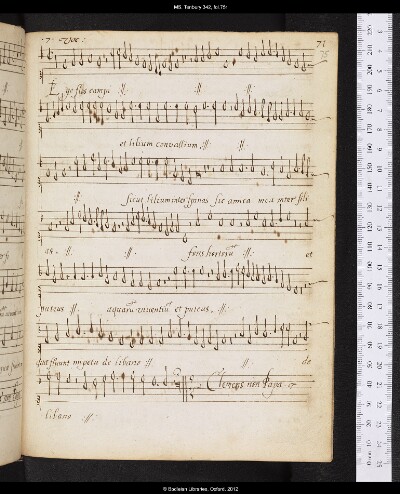 MS. Tenbury 342, fol.75r
·7· Voc:
71
75
Ego flos campi :||: :||: :||:
et lilium convallium, :||: :||:
:||: sicut lilium inter spinas sic amica mea inter fili
as. :||: :||: fons hortorū et
puteus :||: aquarū viventiū et puteus, :||:
quæ fluunt impetu de libano :||: :||: de
libano :||:
Clemens non Papa
© Bodleian Libraries, Oxford, 2012